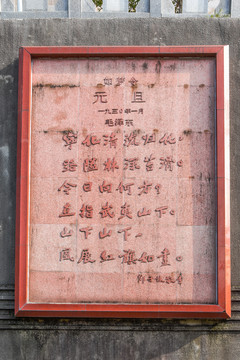 如梦令
元旦
一九三〇年一月
毛泽东
宁化、清流、归化,
路隘林深苔滑。
今日向何方?
直指武夷山下。
山下山下,
风展红旗如画。